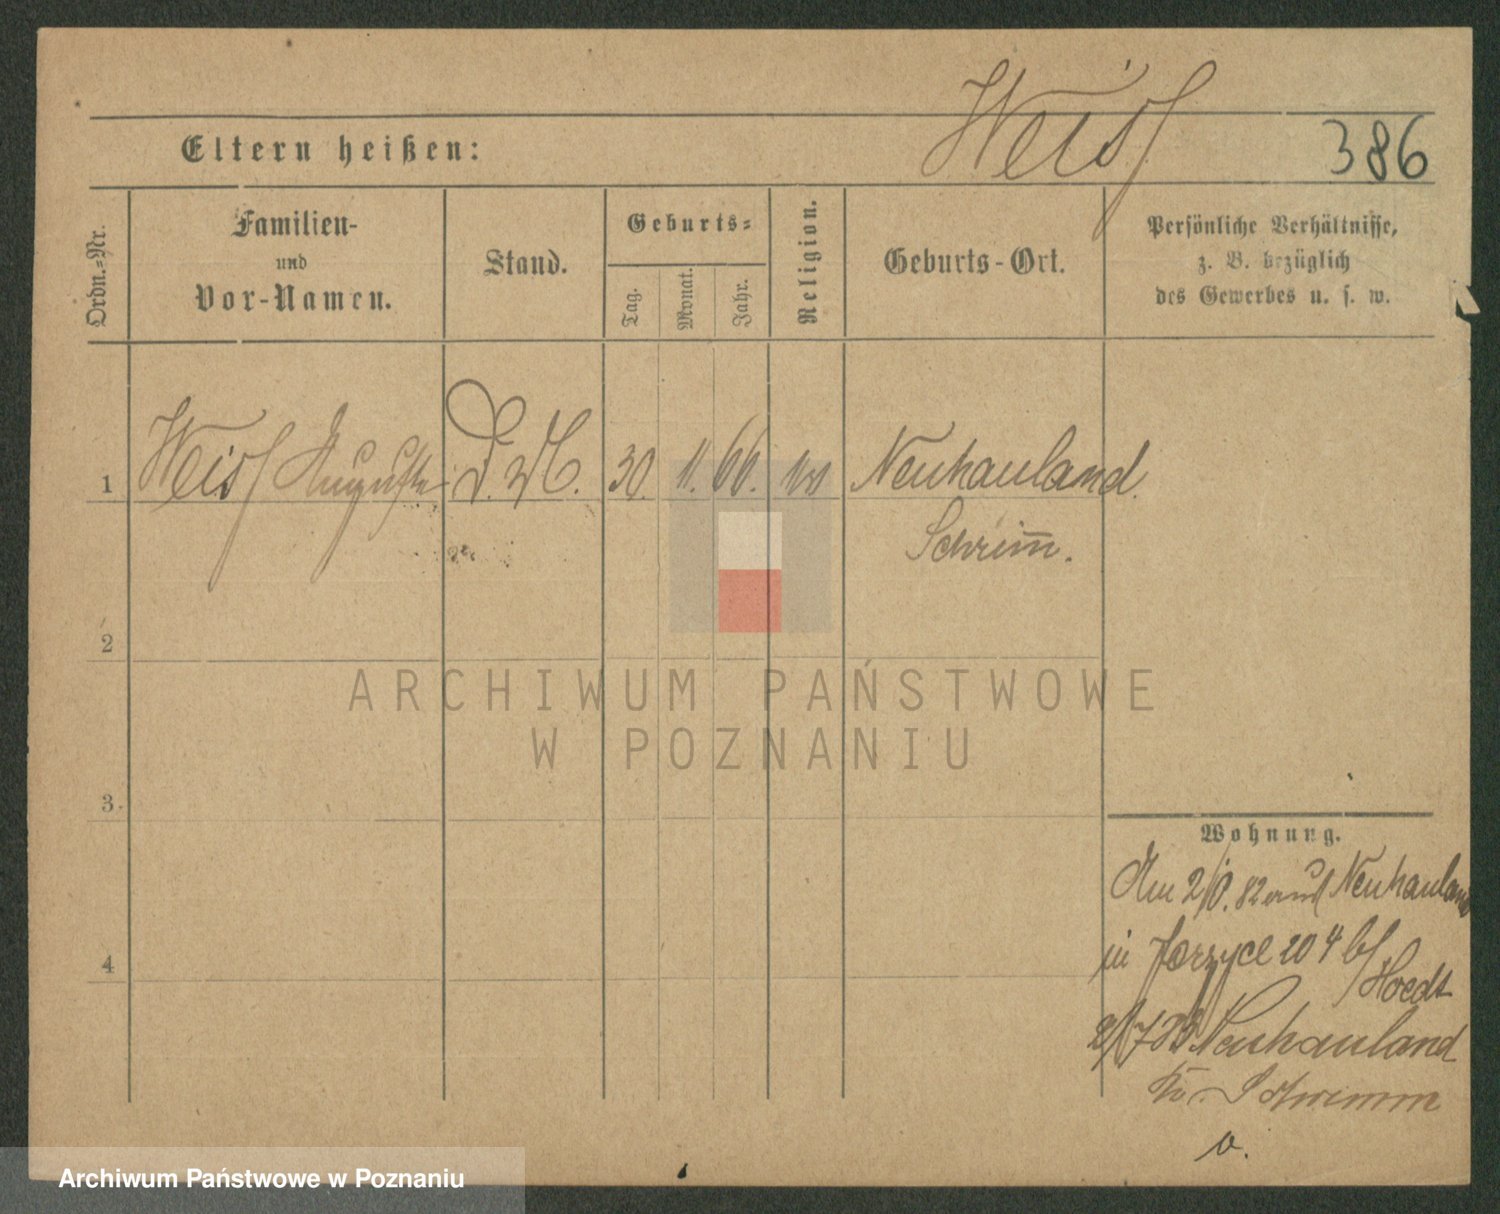 Weiß
386
Eltern heißen:
Ordn.-Nr.
Familien-
und
Vor-Namen.
Stand.
Geburts-
Tag.
Monat.
Jahr.
Religion.
Geburts-Ort.
Persönliche Verhältnisse,
z. B. bezüglich
des Gewerbes u. s. w.
1 Weiß Auguste D. M. 30. 11. 66. Neuhauland.
Schrim̅.
2
3
4
Wohnung.
Am 2/10. 82 aus Neuhauland
in Jerzyce 204 b/
Hoedt
Neuhauland
Kr. Schrimm
v.
ARCHIWUM PAŃSTWOWE
W POZNANIU
Archiwum Państwowe w Poznaniu